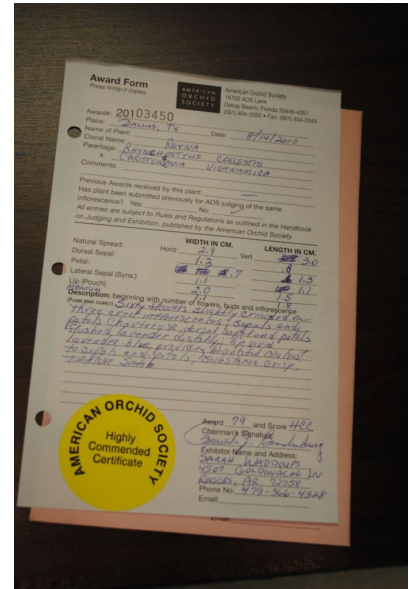 Award Form
Press firmly-3 copies
AMERICAN
ORCHID
SOCIETY
American Orchid Society
16700 AOS Lane
Delray Beach, Florida 33446-4351
(561) 404-2000 • Fax: (561) 404-2045
Award# 20103450
Place: DALLAS, TX Date: 8/14/2010
Name of Plant:
Clonal Name: REYNA
Parentage: RHYNCHOSTYLIS COELESTIS
x CHRISTENSONIA VIETNAMICA
Comments:
Previous Awards received by this plant:
Has plant been submitted previously for AOS judging of the same
inflorescence? Yes: No:
All entries are subject to Rules and Regulations as outlined in the Handbook
on Judging and Exhibition, published by the American Orchid Society.
WIDTH IN CM. LENGTH IN CM.
Natural Spread: Horiz 2.9 Vert 3.0
Dorsal Sepal: 1.3
Petal: .7 1.3
Lateral Sepal (Syns.) 1.1 1.1
Lip (Pouch) 2.0 1.5
Description: beginning with number of flowers, buds and inflorescence
Sixty flowers slightly crowded on
three erect inflorescences; sepals and
petals chartreuse, dorsal sepal and petals
blushed lavender distally; lip vivid
lavender-blue, providing beautiful contrast
to sepals and petals; substance crisp,
texture satin
AMERICAN ORCHID SOCIETY
Highly
Commended
Certificate
Award 79 and Score HCC
Chairman's Signature
Exhibitor Name and Address:
SARAH WADDOUPS
4507 GOLDENACRE LN
ROGERS, AR 72758
Phone No. 479-366-4328
Email: